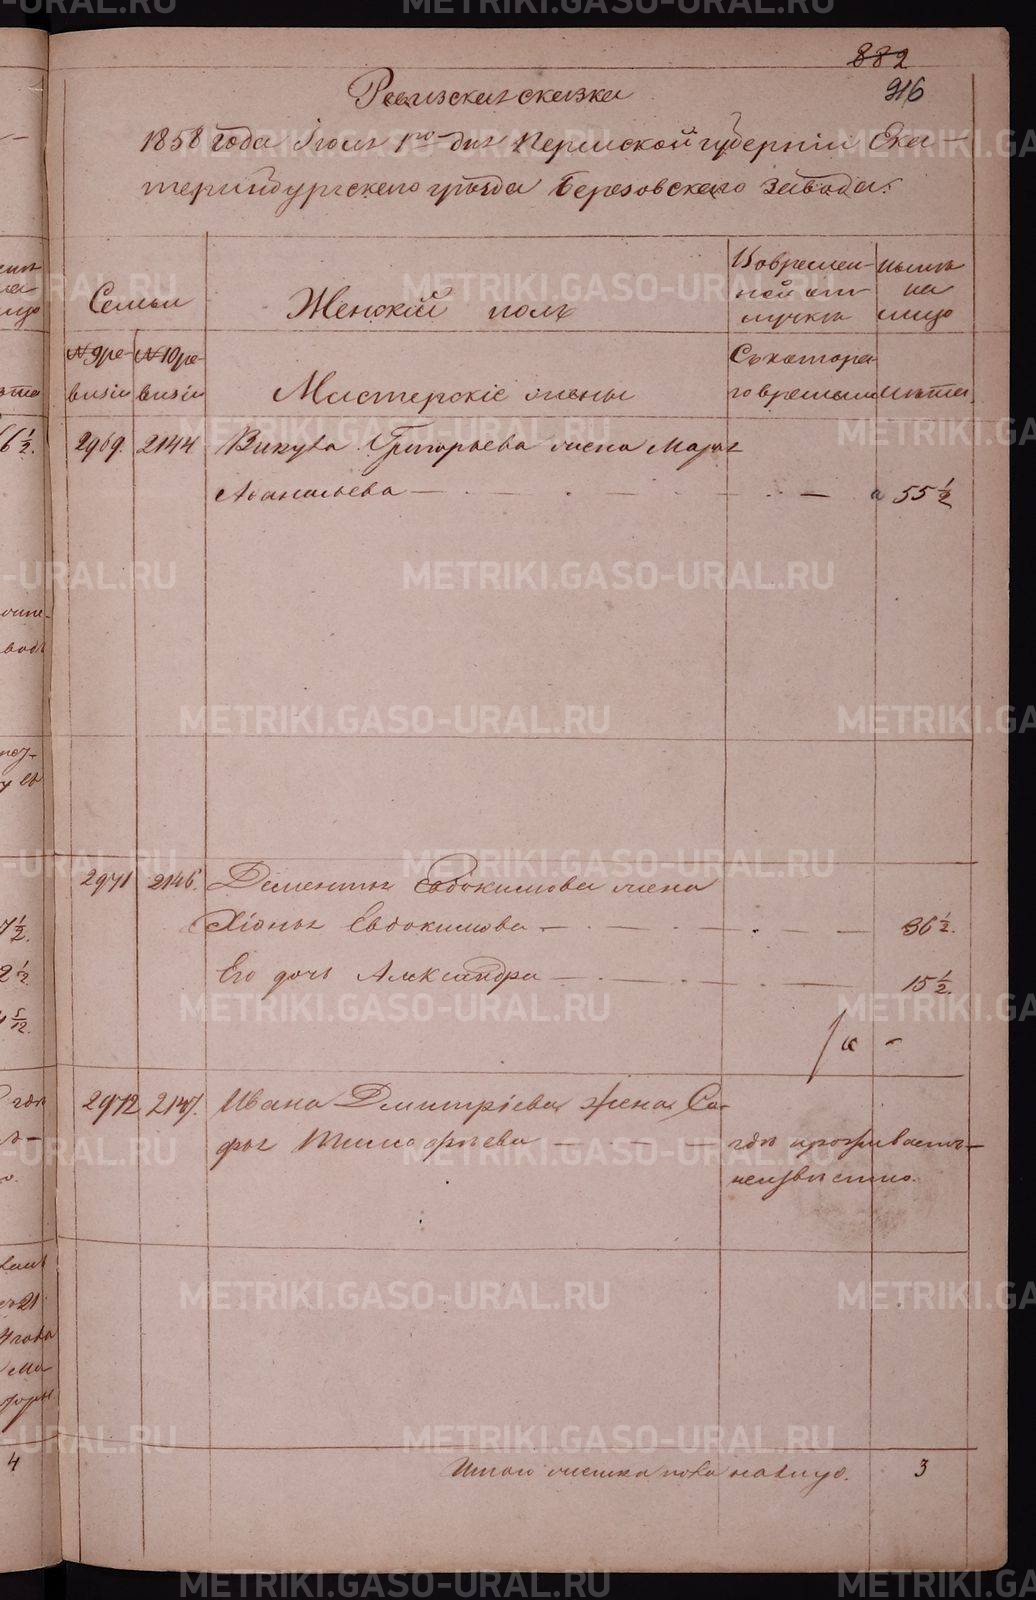 882
916
Ревизская сказка
1858 года Июня 1го дня Пермской губерніи Ека-
теринбургскаго уѣзда Березовскаго завода.
Семьи
Женскій полъ
Во времен-
ной от-
лучкѣ
Нынѣ
на
лицо
№ 9 ре-
визіи
№ 10 ре-
визіи
Мастерскіе жены
Съ котора-
го времени
лѣта
2969. 2144 Викула Григорьева жена Марья
Афанасьева — 55 ½
2971 2146. Дементья Евдокимова жена
Хіонья Евдокимова — 36 ½.
Его дочь Александра — 15 ½.
2972 2147. Ивана Дмитріева жена Со-
фья Тимофѣева — гдѣ проживаетъ—
неизвѣстно.
Итого женска пола на лицо. 3
METRIKI.GASO-URAL.RU